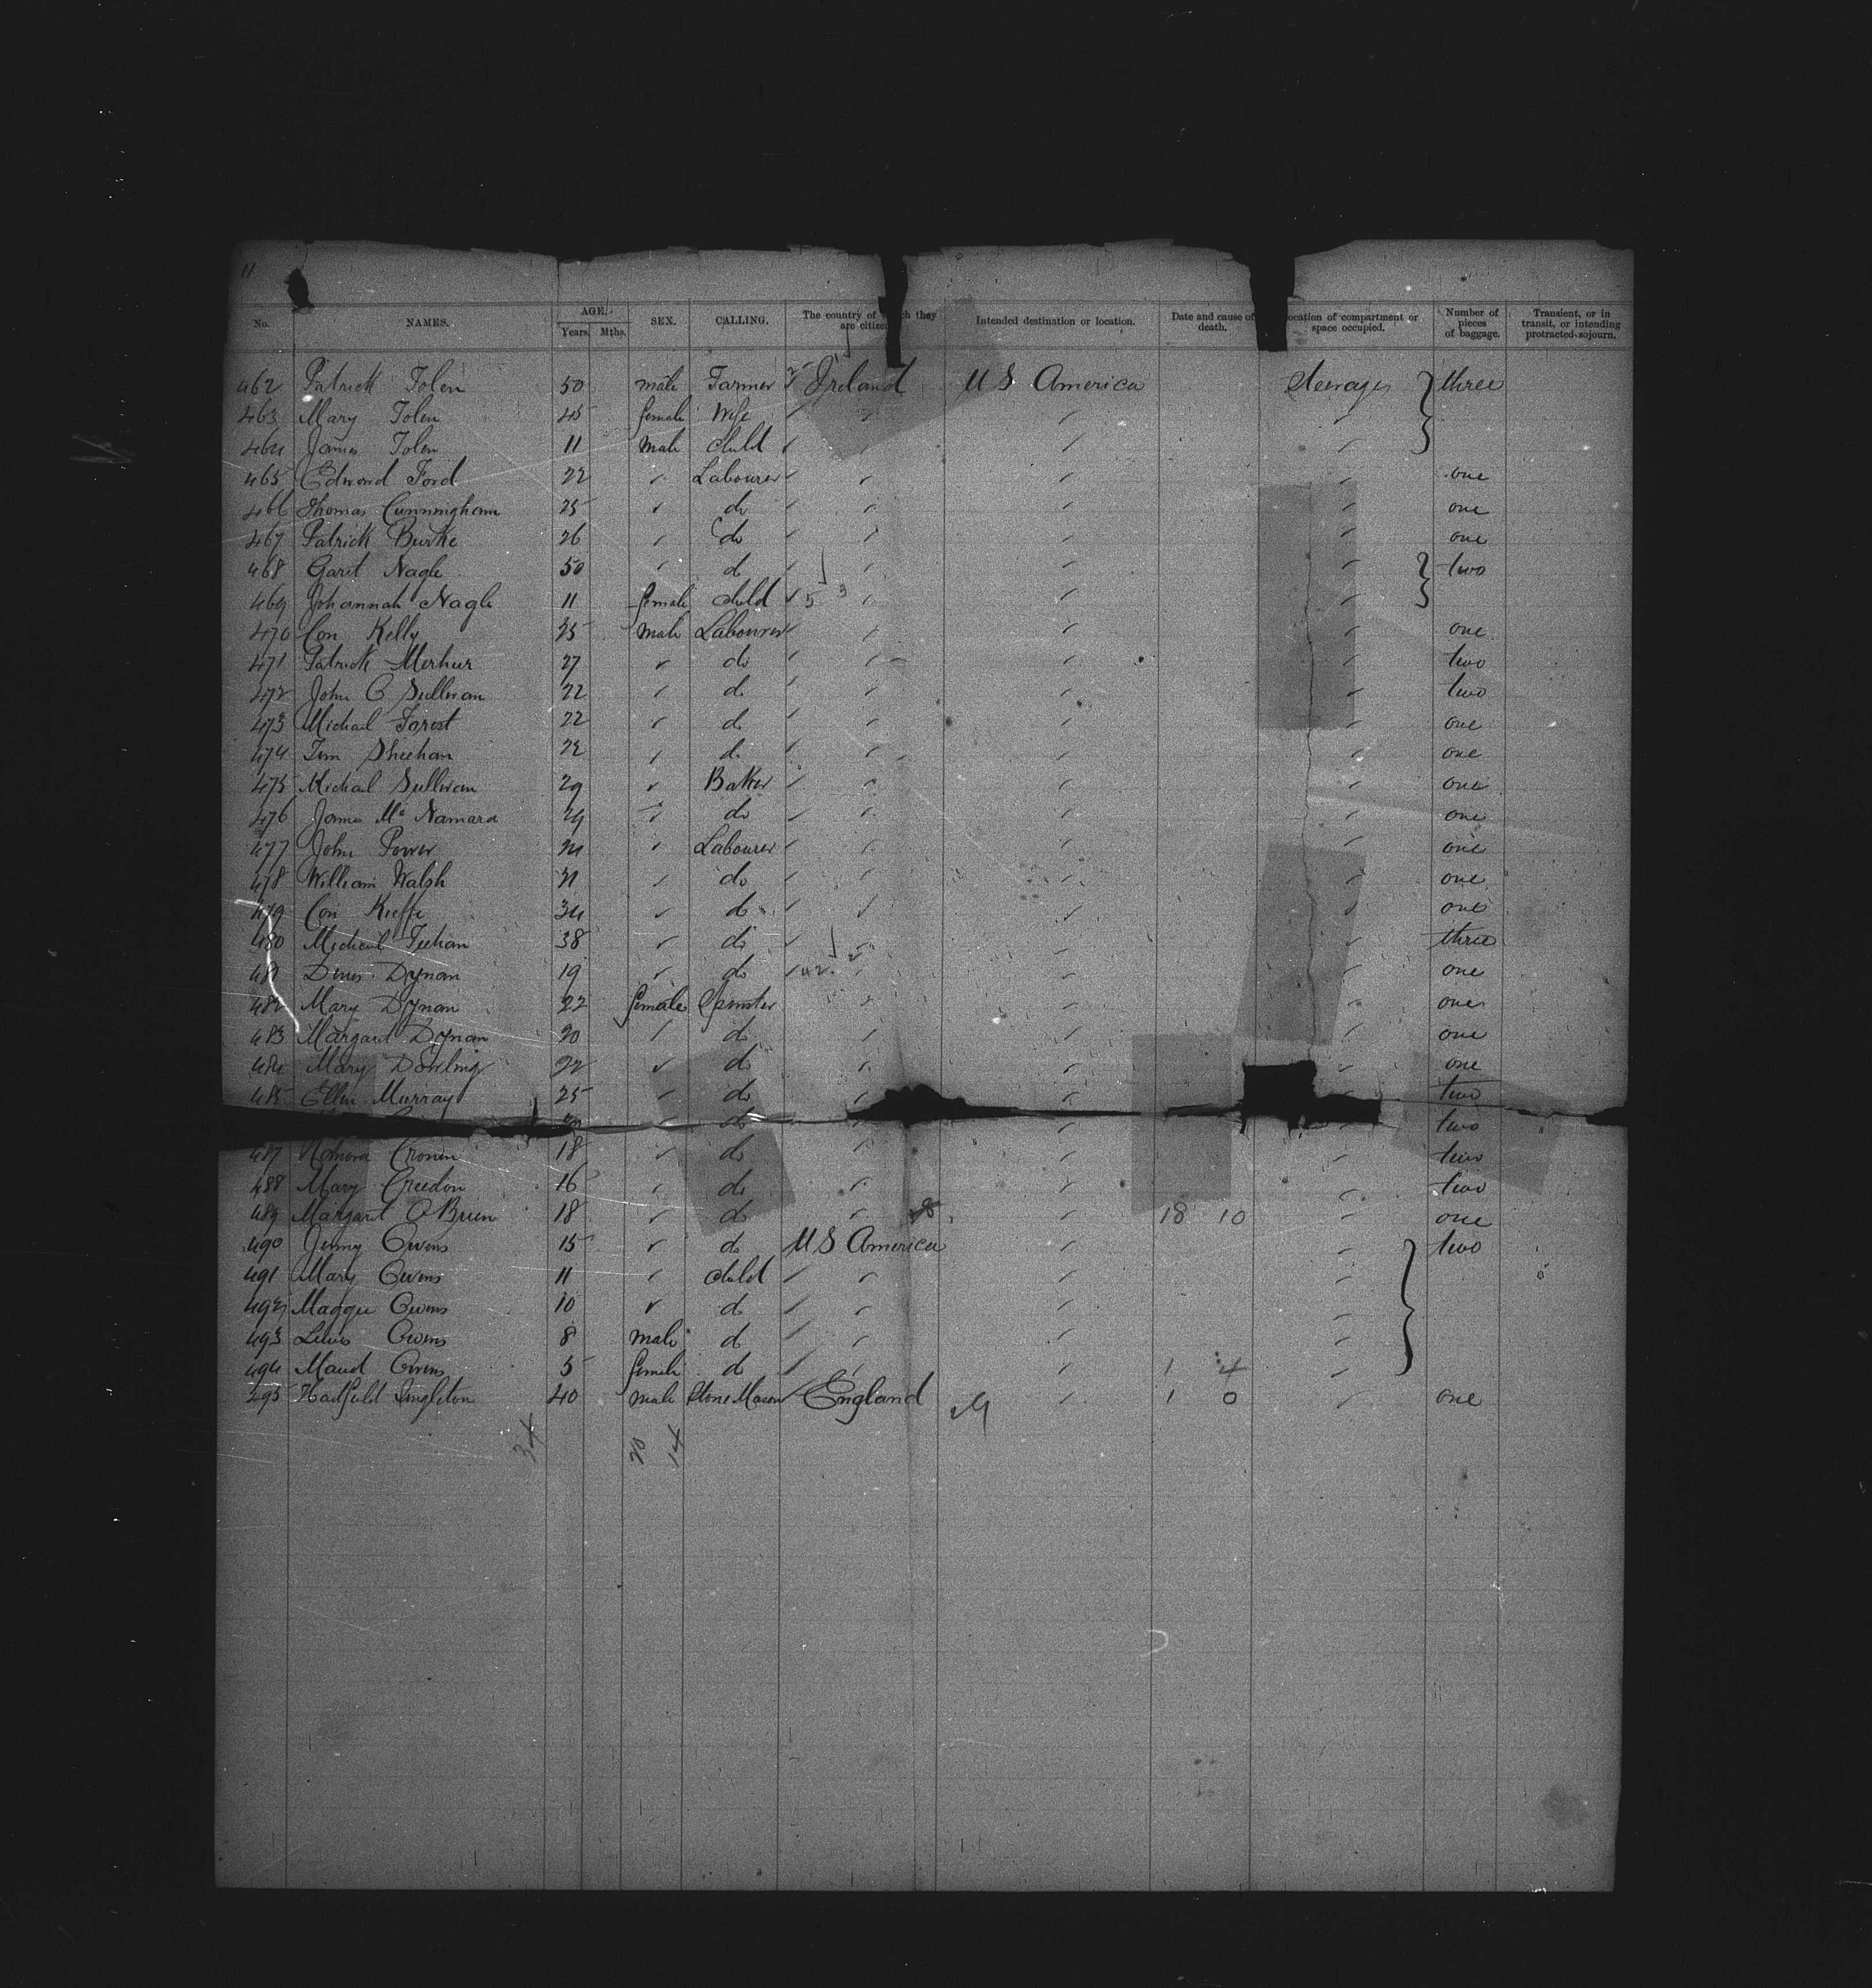 11
No. NAMES. AGE. Years. Mths. SEX. CALLING. The country of which they are citizens Intended destination or location. Date and cause of death. Location of compartment or space occupied. Number of pieces of baggage. Transient, or in transit, or intending protracted sojourn.
462 Patrick Tolen 50 male Farmer Ireland U S America Steerage three
463 Mary Tolen 45 female Wife
464 James Tolen 11 male child
465 Edmond Ford 22 Labourer one
466 Thomas Cunningham 25 do one
467 Patrick Burke 26 do one
468 Garit Nagle 50 do two
469 Johannah Nagle 11 female child 5 3
470 Con Kelly 25 male Labourer one
471 Patrick Merhur 27 do two
472 John O Sullivan 22 do two
473 Michael Forest 22 do one
474 Tim Sheehan 22 do one
475 Michael Sullivan 29 Baker one
476 James Mc Namara 29 do one
477 John Power 21 Labourer one
478 William Walsh 21 do one
479 Con Kieffe 34 do one
480 Michael Teehan 38 do three
481 Denis Dynan 19 do one
482 Mary Dynan 22 female Spinster one
483 Margaret Dynan 20 do one
484 Mary Dowling 22 do one
485 Ellen Murray 25 do two
do two
487 Honora Cronin 18 do two
488 Mary Creedon 16 do two
489 Margaret O'Brien 18 do 18 10 one
490 Jenny Owens 15 do U S America two
491 Mary Owens 11 child
492 Maggie Owens 10 do
493 Lewis Owens 8 male do
494 Maud Owens 5 female do 1 4
495 Hadfield Singleton 40 male Stone Mason England 1 0 one
34 20 14